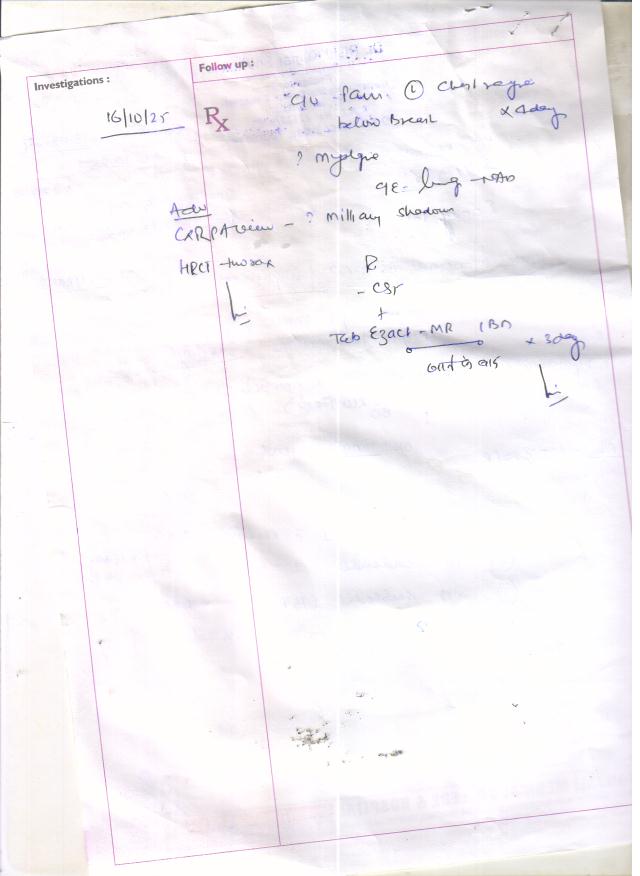 Investigations :
Follow up :
16/10/25
Rx
C/o Pain (L) Chest
below Breast x 4 day
? Myalgia
Adv
CXR PA view - ? Milliary shadows
HRCT - thorax
R
- CST
+
Tab Ezact - MR (BD) x 3 day
खाने के बाद